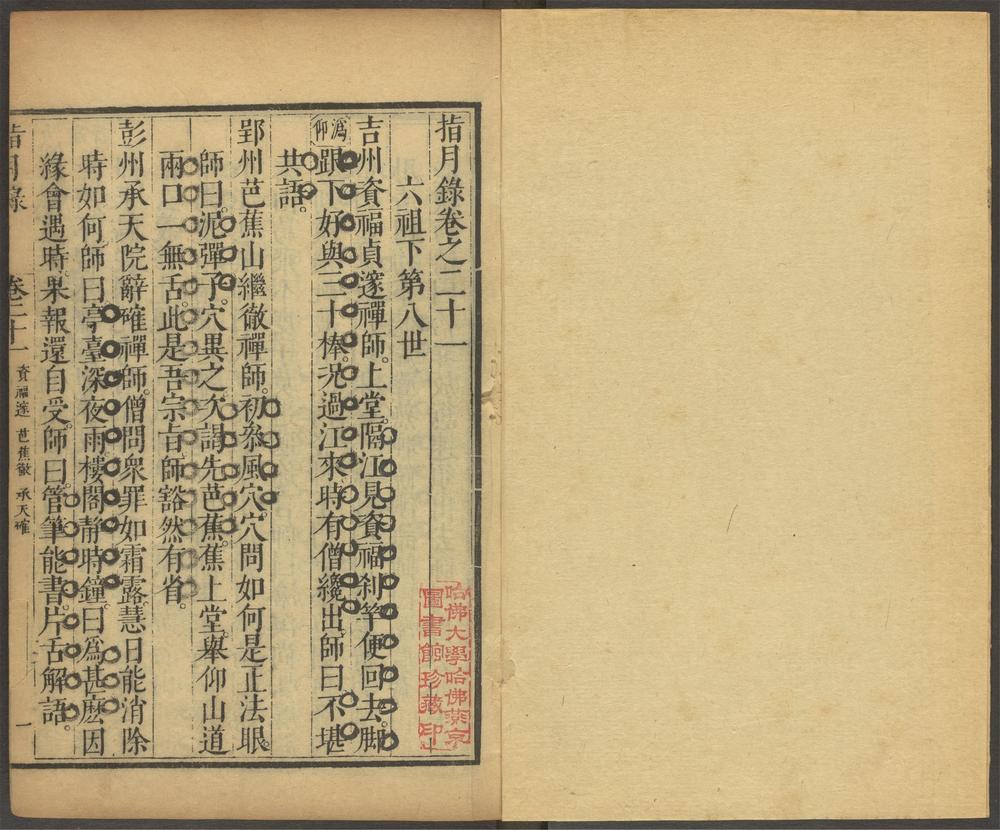 指月錄卷之二十一
六祖下第八世
吉州資福貞邃禪師。上堂。隔江見資福刹竿便回去。脚
溈仰
跟下好與三十棒。況過江來時有僧纔出。師曰不堪
共語。
郢州芭蕉山繼徹禪師。初叅風穴。穴問如何是正法眼。
師曰。泥彈子。穴異之。次謁先芭蕉。蕉上堂。舉仰山道
兩口一無舌。此是吾宗旨。師豁然有省。
彭州承天院辭確禪師。僧問衆罪如霜露。慧日能消除
時如何。師曰亭臺深夜雨。樓閣静時鐘。曰爲甚麽因
緣會遇時。果報還自受。師曰。管筆能書。片舌解語。
指月錄
卷二十一
資福邃 芭蕉徹 承天確
一
哈佛大學哈佛燕京
圖書館珍藏印